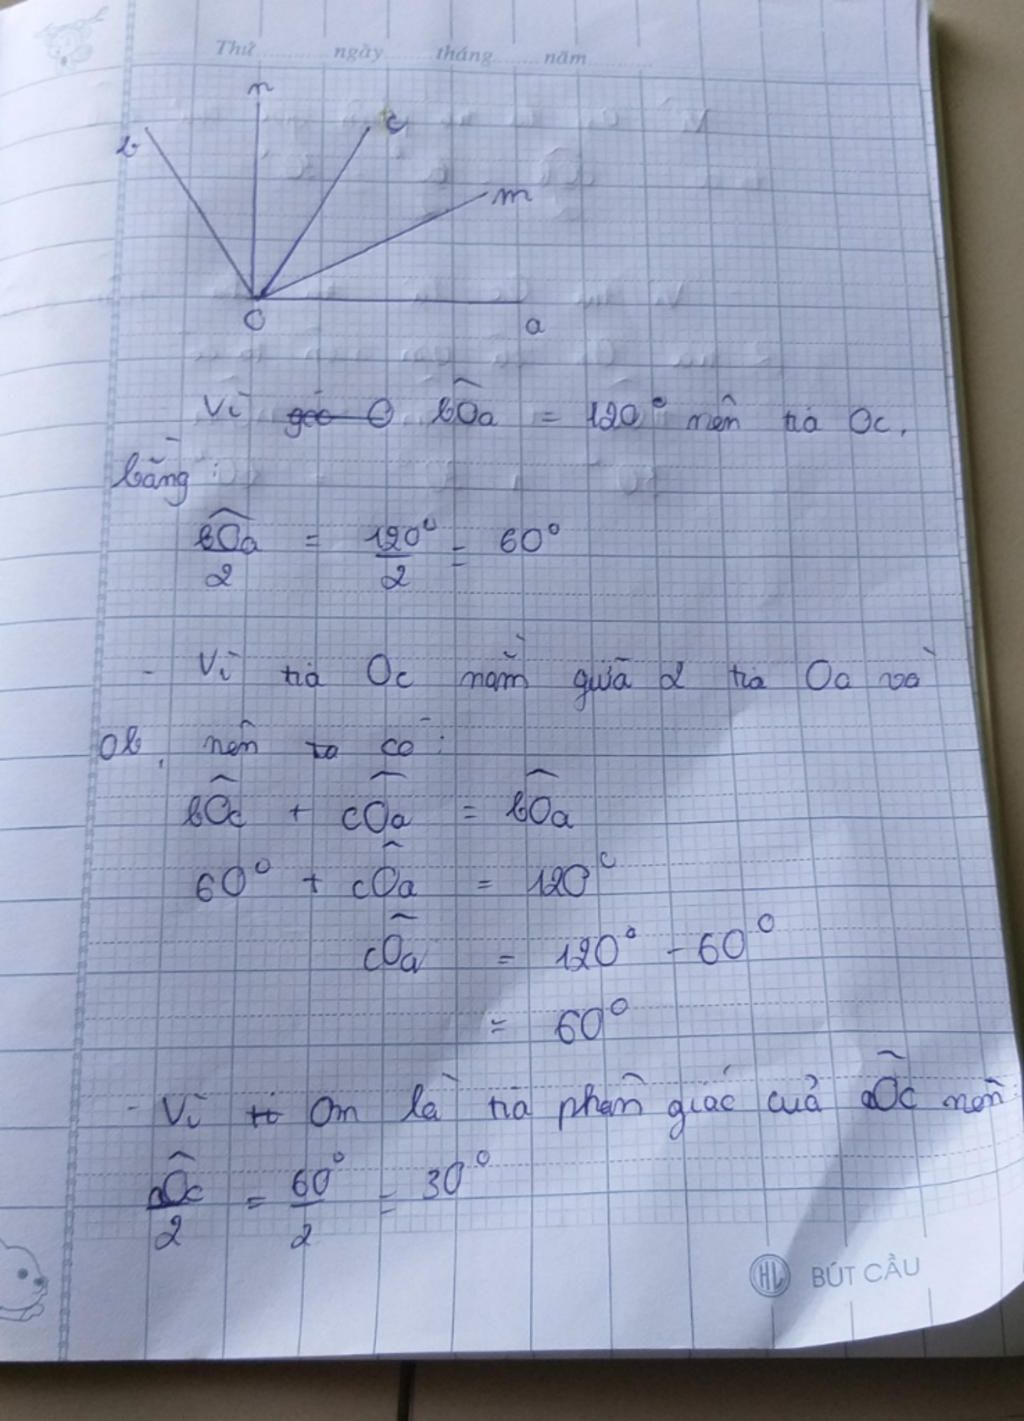 Thứ ........ ngày ........ tháng ........ năm ........
n
c
b
m
O
a
Vì góc O bOa = 120° nên tia Oc,
bằng:
bOa/2 = 120°/2 = 60°
- Vì tia Oc nằm giữa 2 tia Oa và
Ob, nên ta có:
bOc + cOa = bOa
60° + cOa = 120°
cOa = 120° - 60°
= 60°
- Vì ti Om là tia phân giác của aOc nên:
aOc/2 = 60°/2 = 30°
HL BÚT CẦU